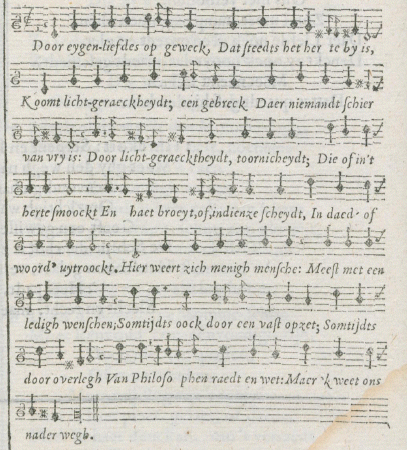 Door eygen-liefdes op geweck, Dat steedts het her te by is,
Koomt licht-geraecktheydt; een gebreck Daer niemandt schier
van vry is: Door licht-geraecktheydt, toornicheydt; Die of in't
herte smoockt En haet broeyt, of, indien ze scheydt, In daed' of
woord' uytroockt. Hier weert zich menigh mensche: Meest met een
ledigh wenschen; Somtijdts oock door een vast opzet; Somtijdts
door overlegh Van Philoso phen raedt en wet: Maer 'k weet ons
nader wegh.